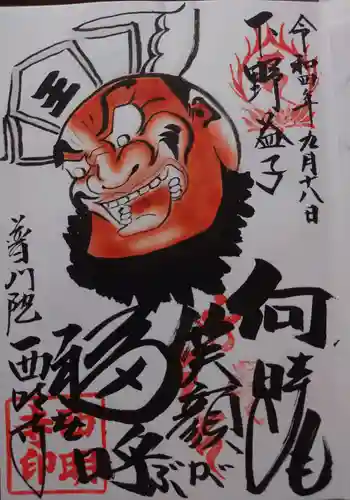 令和四年五月十八日
下野 益子
王
何時も
笑顔が
福を呼ぶ
普門院
西明寺
西明
寺印